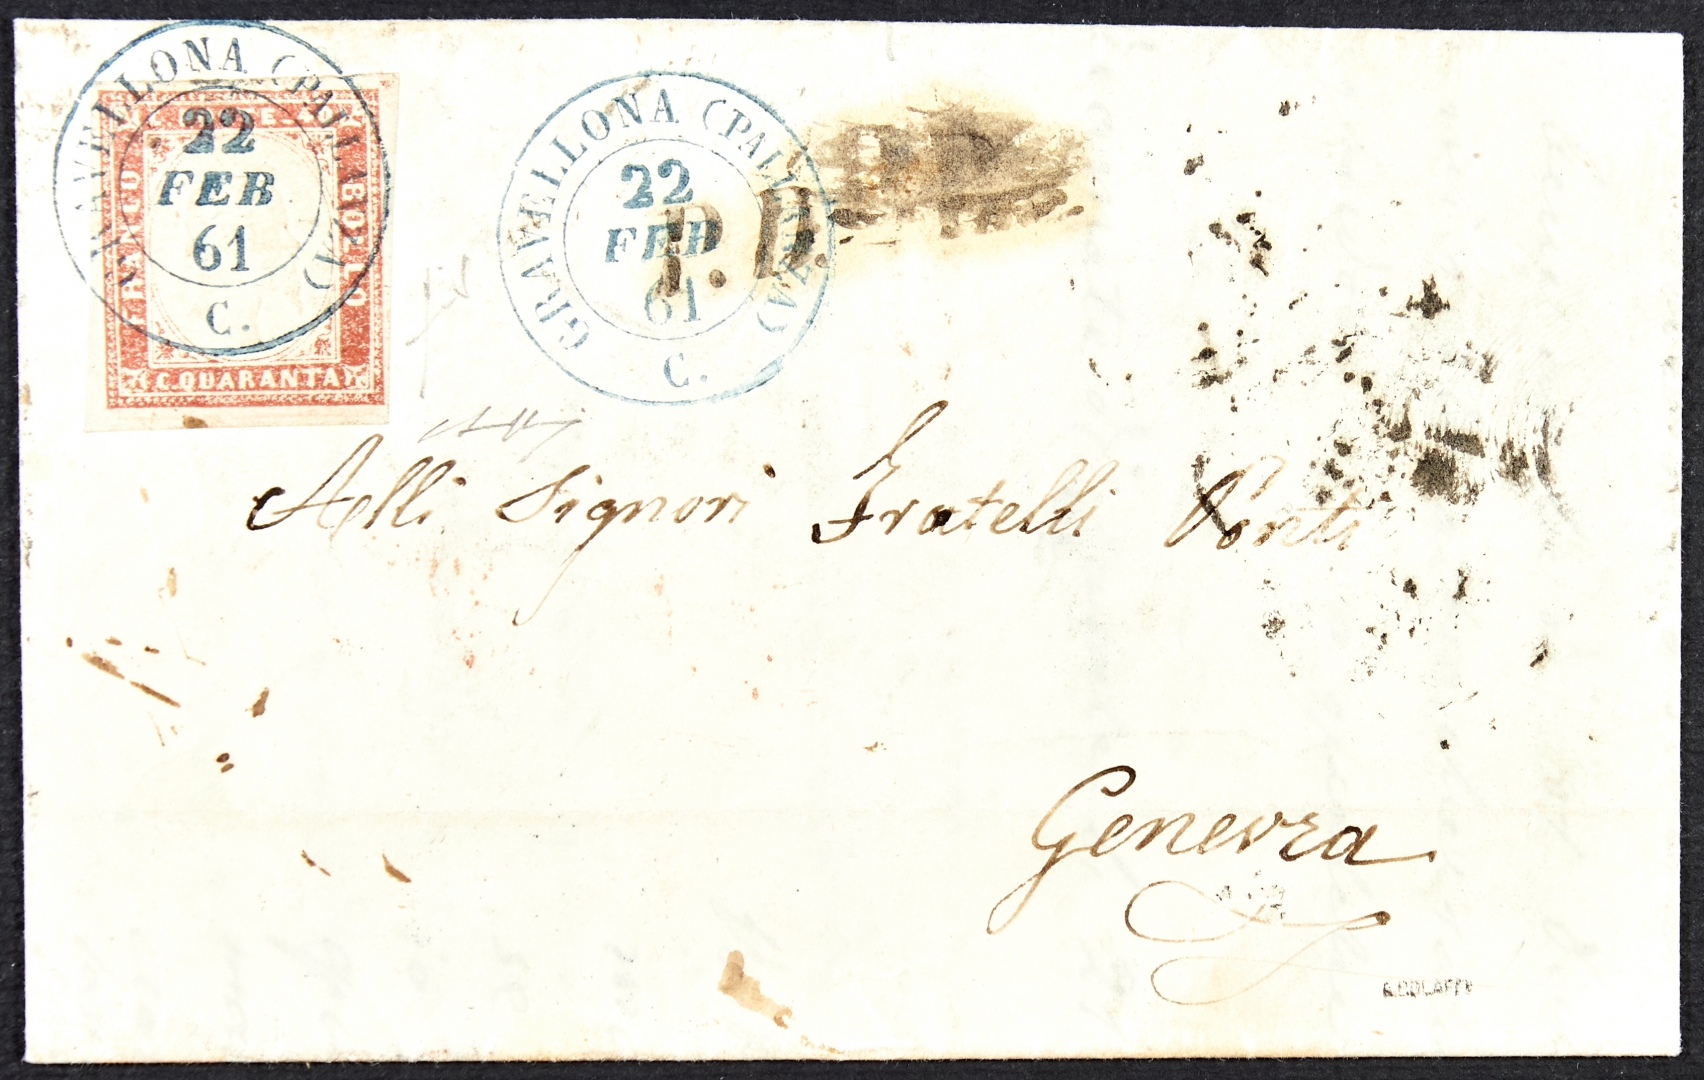 GRAVELLONA (PALLANZA)
22
FEB
61
C.
FRANCO
BOLLO
C. QUARANTA
GRAVELLONA (PALLANZA)
22
FEB
61
C.
P.D.
Alli Signori Fratelli Ponti
Genevra
A. BOLAFFI